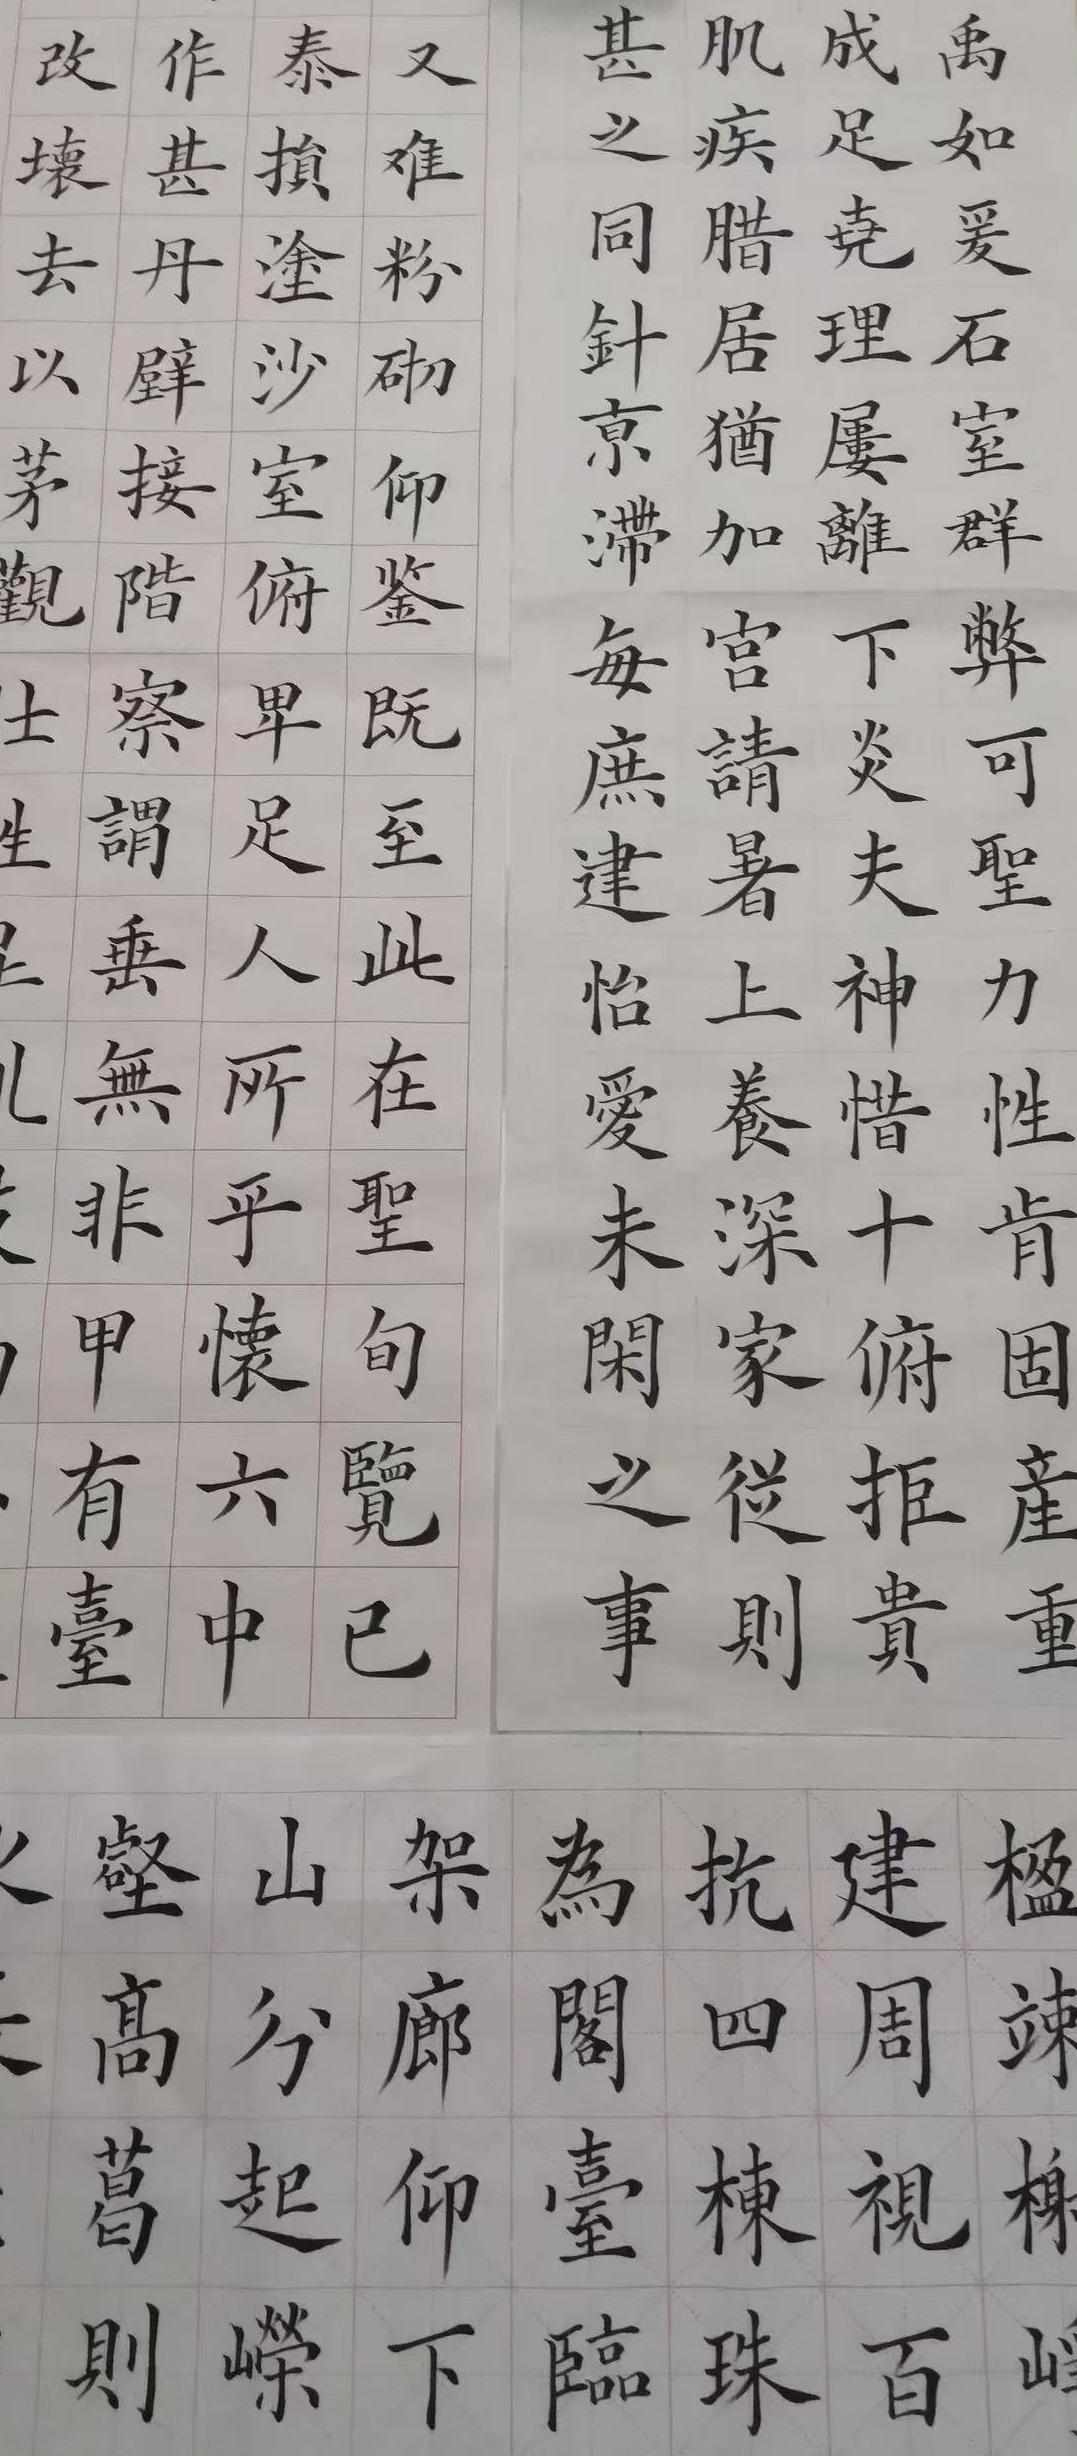 禹如爰石室群弊可聖力性肯固産重
成足堯理屢離下炎夫神惜十俯拒貴
肌疾腊居猶加宫請暑上養深家従則
甚之同針京滞每庶建怡愛未閑之事
又难粉砌仰鉴既至此在聖旬覽已
泰損塗沙室俯卑足人所乎懐六中
作甚丹壁接階察謂垂無非甲有臺
改壞去以茅觀士
楹竦榭
建周視百
抗四棟珠
為閣臺臨
架廊仰下
山分起嶸
壑高葛則